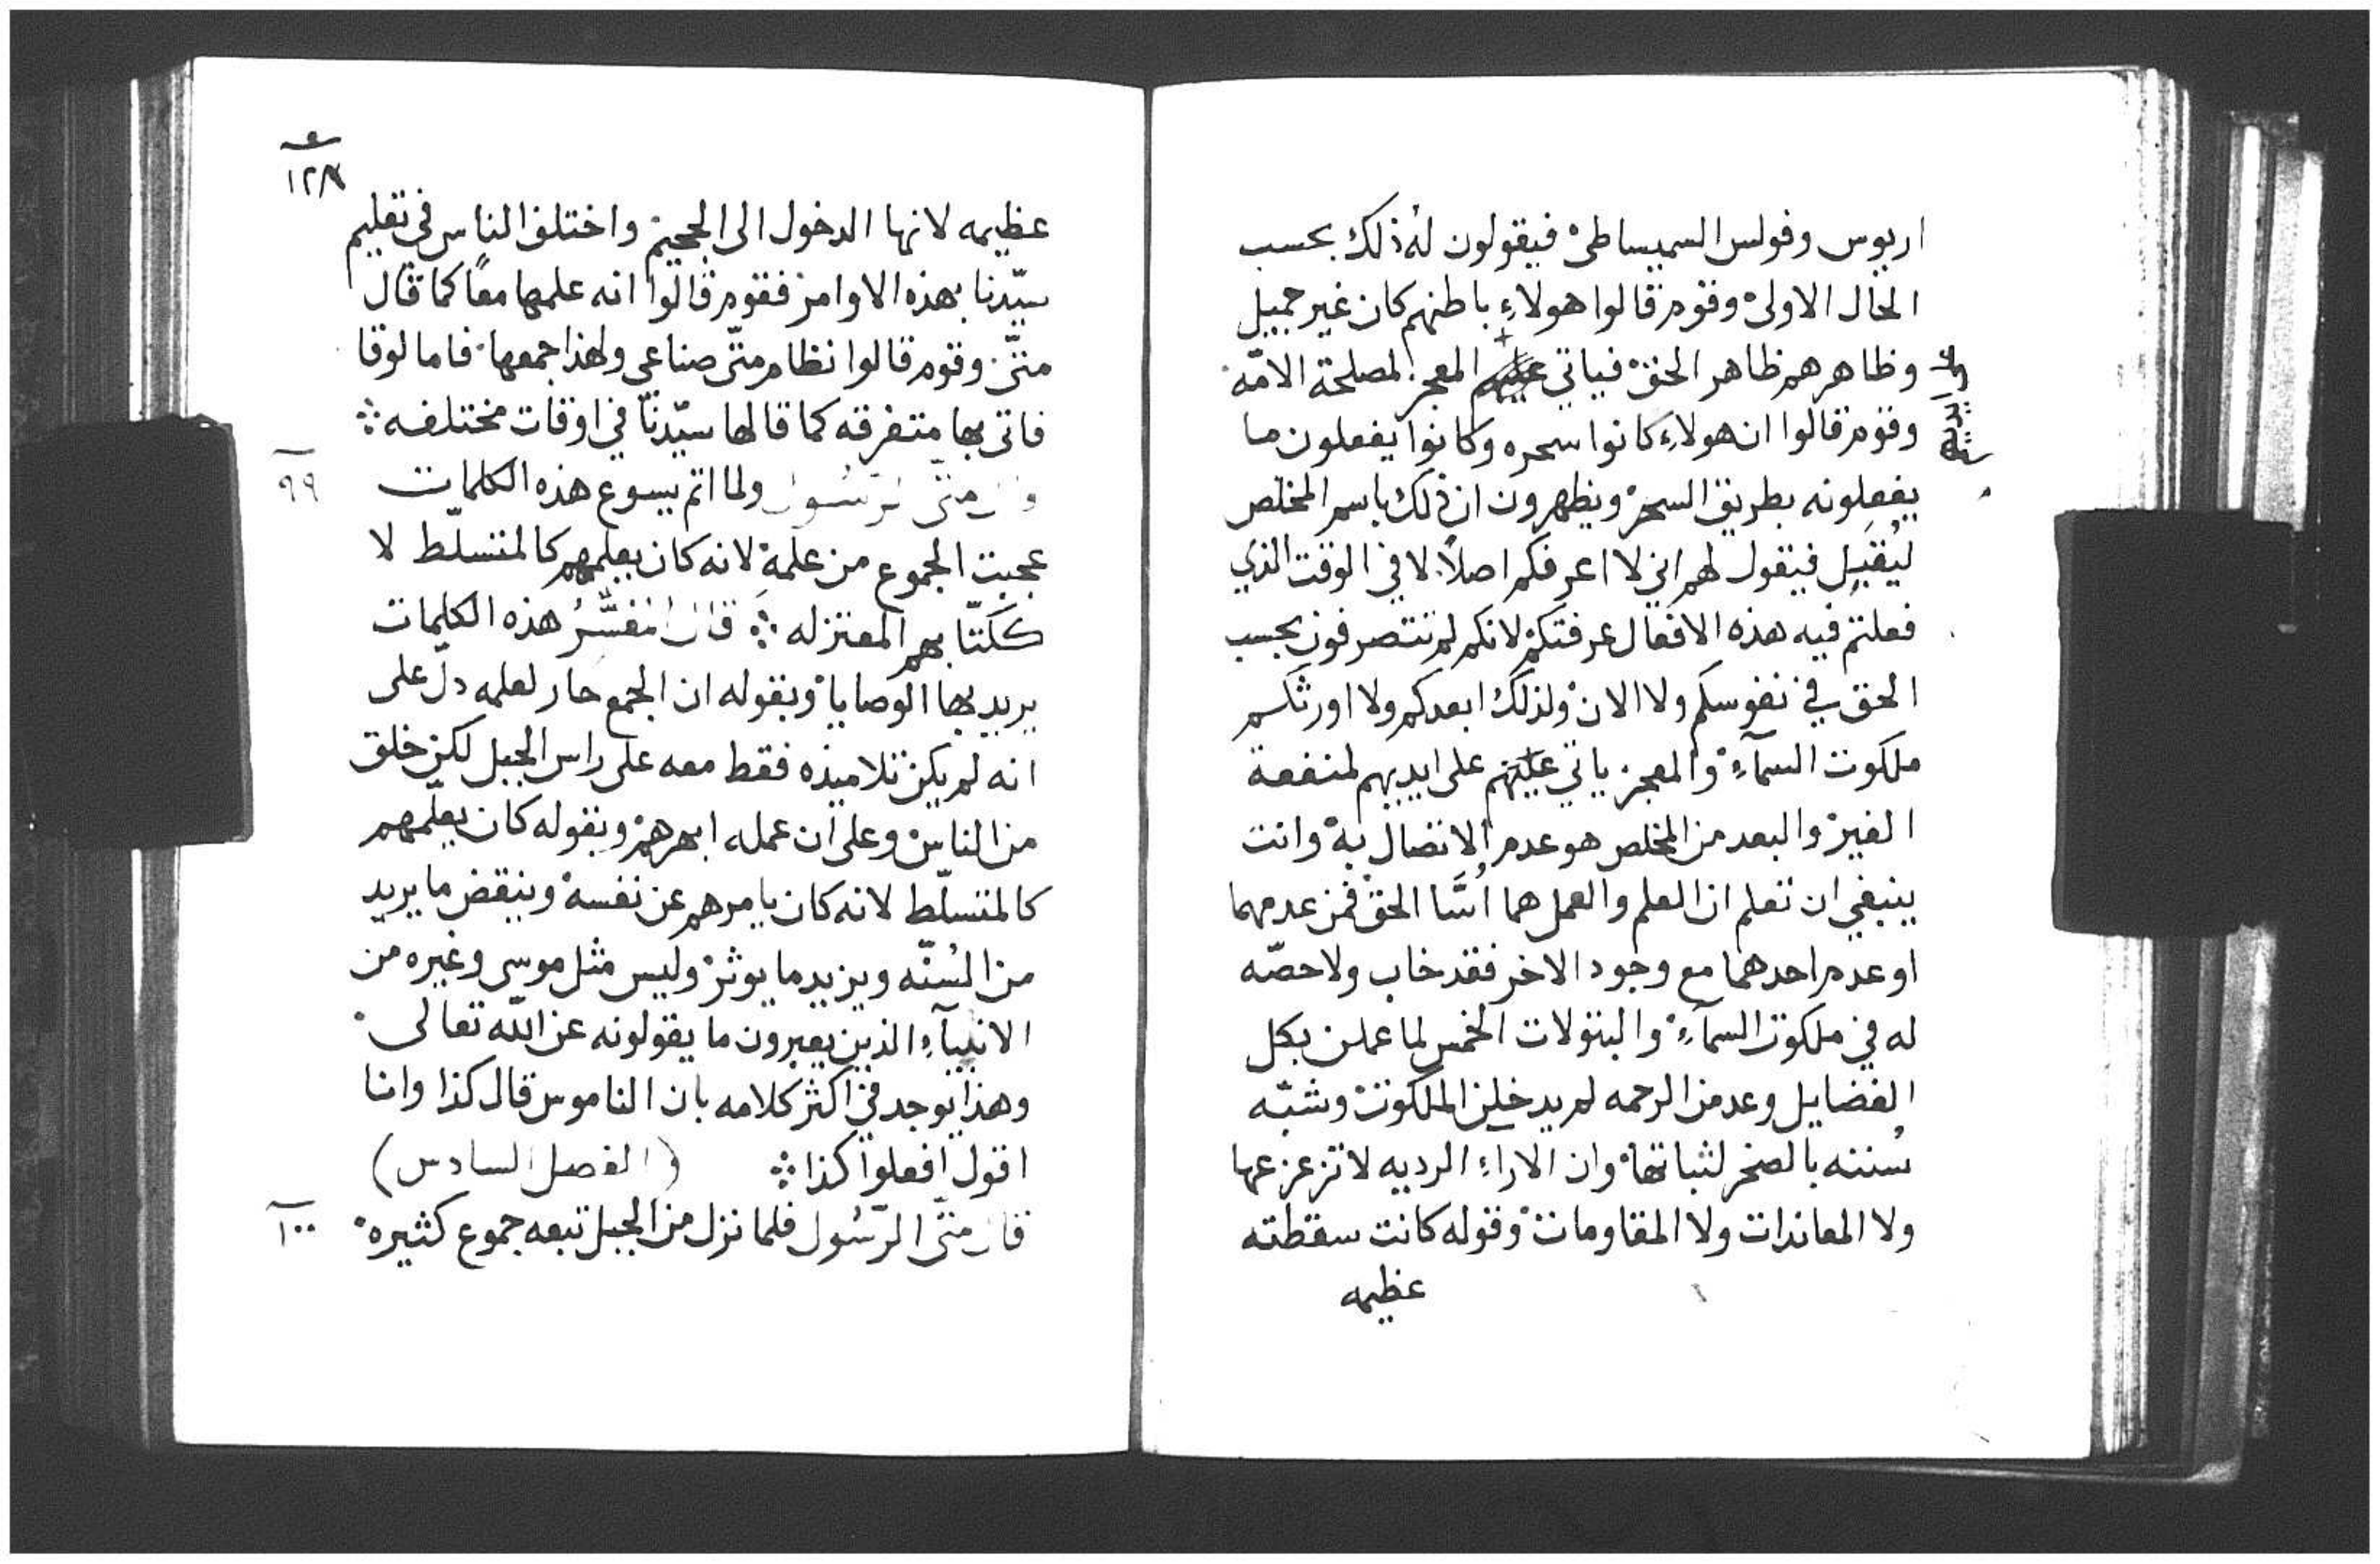 اريوس وفولس السميساطى فيقولون له ذلك بحسب
الحال الاولى وقوم قالوا هولاءِ باطنهم كان غير جميل
وظاهرهم ظاهر الحق فياتي المعجز لمصلحة الامّه
وقوم قالوا ان هولاءِ كانوا سحره وكانوا يفعلون ما
يفعلونه بطريق السحر ويظهرون ان ذلك باسم المخلص
ليُقبل فيقول لهم اني لا اعرفكم اصلاً لا في الوقت الذي
فعلتم فيه هذه الافعال عرفتكم لانكم لم تتصرفون بحسب
الحق في نفوسكم ولا الان ولذلك ابعدكم ولا اورثكم
ملكوت السمآءِ والمعجز ياتي على ايديهم لمنفعة
الغير والبعد من المخلص هو عدم الاتصال به وانت
ينبغي ان تعلم ان العلم والعمل هما اُسَّا الحق فمن عدمهما
او عدم احدهما مع وجود الاخر فقد خاب ولا حصّه
له في ملكوت السمآءِ والبتولات الخمس لما عملن بكل
الفضايل وعدمن الرحمه لم يدخلن الملكوت وشبّه
سُننه بالصخر لثباتها وان الاراءِ الرديه لا تزعزعها
ولا المعاندات ولا المقاومات وقوله كانت سقطته
عظيمه
١٢٨
عظيمه لانها الدخول الى الجحيم واختلف الناس في تعليم
سيّدنا بهذه الاوامر فقوم قالوا انه علمها معًا كما قال
متّى وقوم قالوا نظام متّى صناعي ولهذا جمعها فاما لوقا
فاتى بها متفرقه كما قالها سيّدنا في اوقات مختلفه
٩٩
قال متّى الرّسُول ولما اتم يسوع هذه الكلمات
عجبت الجموع من علمه لانه كان يعلمهم كالمتسلّط لا
ككتّابهم المعتزله قال المفسّر هذه الكلمات
يريد بها الوصايا وبقوله ان الجمع حار لعلمه دلّ على
انه لم يكن تلاميذه فقط معه على راس الجبل لكن خلق
من الناس وعلى ان عمله ابهرهم وبقوله كان يعلّمهم
كالمتسلّط لانه كان يامرهم عن نفسه وينقض ما يريد
من السُنّه ويزيد ما يوثر وليس مثل موسى وغيره من
الانبيآءِ الذين يعبرون ما يقولونه عن اللّه تعالى
وهذا يوجد في اكثر كلامه بان الناموس قال كذا وانا
اقول افعلوا كذا (الفصل السادس)
١٠٠
قال متّى الرّسُول فلما نزل من الجبل تبعه جموع كثيره